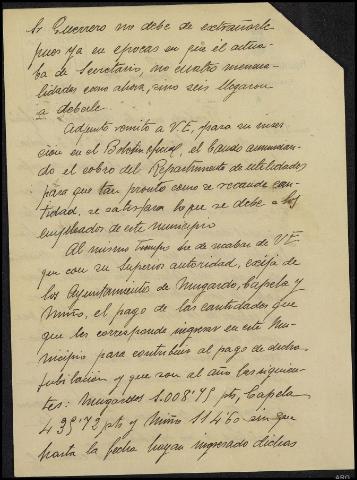 Sr. Guerrero no debe de extrañarle
pues ya en epocas en que él actua-
ba de Secretario, no cuatro mensua-
lidades como ahora, sino seis llegaron
a deberle.
Adjunto remito a V.E. para su inser-
cion en el Boletin oficial, el bando anuncian-
do el cobro del Repartimiento de utilidades
para que tan pronto como se recaude can-
tidad, se satisfara lo que se debe a los
empleados de este municipio
Al mismo tiempo he de recabar de V.E
que con su Superior autoridad, exija de
los Ayuntamientos de Mugardos, Capela y
Miño, el pago de las cantidades que
que les corresponde ingresar en este Mu-
nicipio para contribuir al pago de dicha
jubilacion y que son al año las siguien-
tes: Mugardos 1.008'75 pts, Capela
439'72 pts y Miño 114'60 sin que
hasta la fecha hayan ingresado dichos
ARG